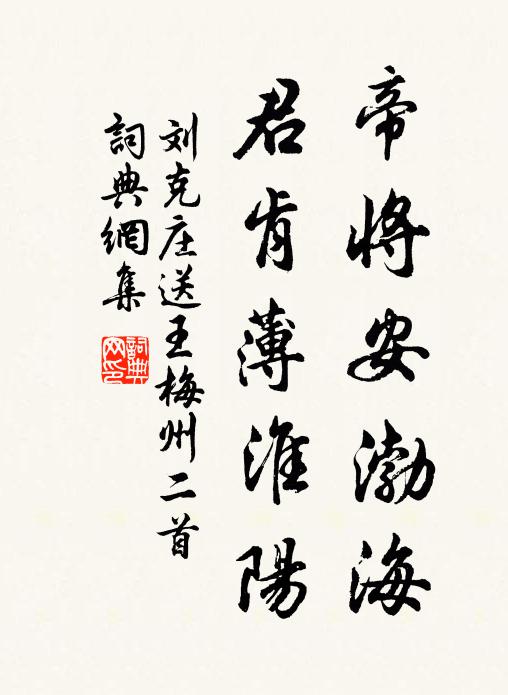 帝將安渤海
君肯薄淮陽
刘克庄送王梅州二首
詞典網集
詞典网印